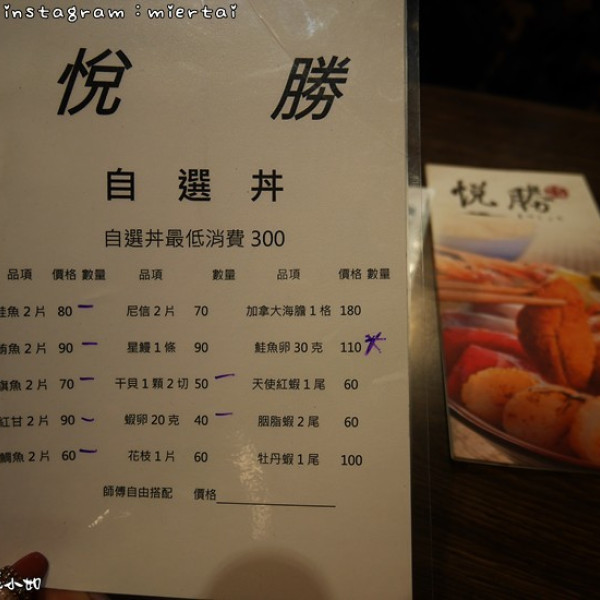 instagram : miertai
悅 勝
自 選 丼
自選丼最低消費 300
品項 價格 數量 品項 數量 品項 價格 數量
鮭魚 2 片 80 一 尼信 2 片 70 加拿大海膽 1 格 180
鮪魚 2 片 90 一 星鰻 1 條 90 鮭魚卵 30 克 110
旗魚 2 片 70 一 干貝 1 顆 2 切 50 一 天使紅蝦 1 尾 60
紅甘 2 片 90 一 蝦卵 20 克 40 一 胭脂蝦 2 尾 60
鯛魚 2 片 60 一 花枝 1 片 60 牡丹蝦 1 尾 100
師傅自由搭配 價格
悅 勝
小如